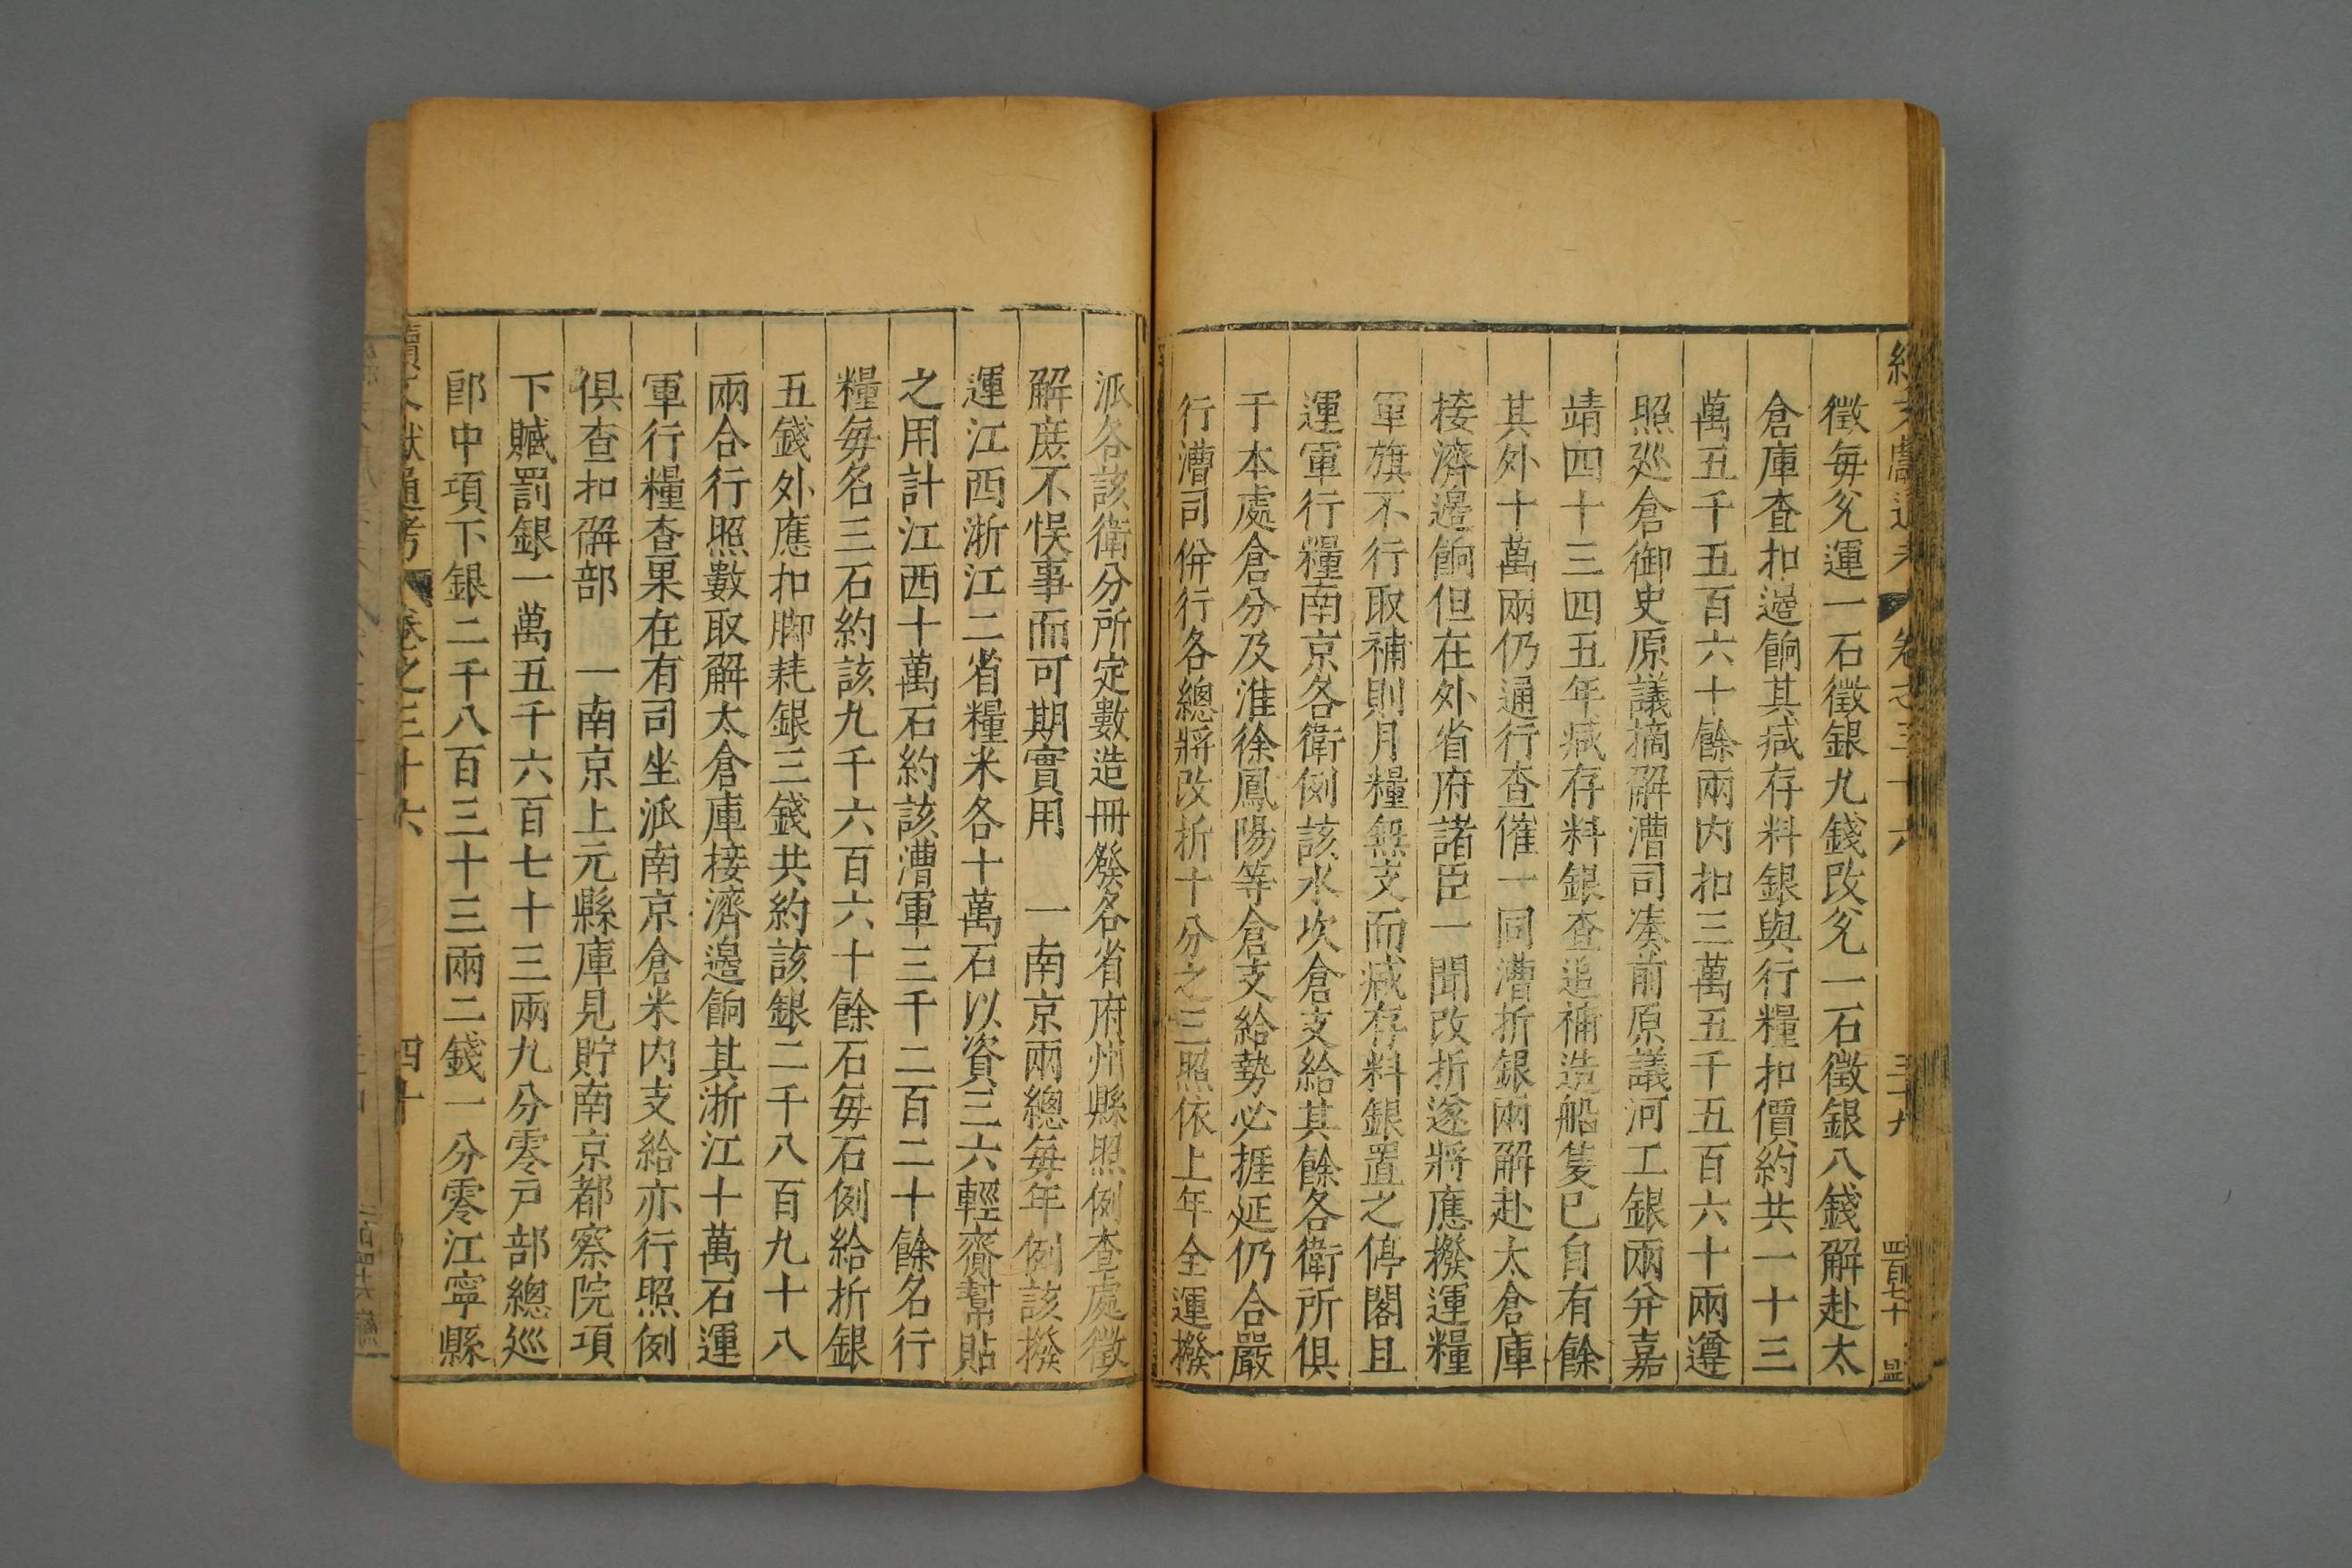 續文獻通考 卷之三十六 三十九 四百七十
徵每兊運一石徵銀九錢改兊一石徵銀八錢解赴太
倉庫查扣邊餉其减存料銀與行糧扣價約共一十三
萬五千五百六十餘兩內扣三萬五千五百六十兩遵
照廵倉御史原議摘解漕司凑前原議河工銀兩并嘉
靖四十三四五年减存料銀查追補造船隻已自有餘
其外十萬兩仍通行查催一同漕折銀兩解赴太倉庫
接濟邊餉但在外省府諸臣一聞改折遂將應撥運糧
軍旗不行取補則月糧無支而减存料銀置之停閣且
運軍行糧南京各衛例該水次倉支給其餘各衛所俱
于本處倉分及淮徐鳳陽等倉支給勢必捱延仍合嚴
行漕司併行各總將改折十分之三照依上年全運撥
派各該衛分所定數造冊發各省府州縣照例查處徵
解庶不悞事而可期實用　一南京兩總每年例該撥
運江西浙江二省糧米各十萬石以資三六輕齎幫貼
之用計江西十萬石約該漕軍三千二百二十餘名行
糧每名三石約該九千六百六十餘石每石例給折銀
五錢外應扣脚耗銀三錢共約該銀二千八百九十八
兩合行照數取解太倉庫接濟邊餉其浙江十萬石運
軍行糧查果在有司坐派南京倉米內支給亦行照例
俱查扣解部　一南京上元縣庫見貯南京都察院項
下贓罰銀一萬五千六百七十三兩九分零戸部總廵
郎中項下銀二千八百三十三兩二錢一分零江寧縣
續文獻通考 卷之三十六 四十